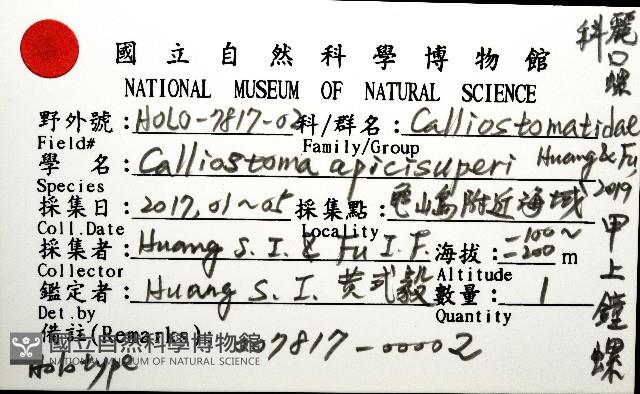 國立自然科學博物館
NATIONAL MUSEUM OF NATURAL SCIENCE
野外號：HOLO-7817-02 科/群名：Calliostomatidae
Field# Family/Group
學 名：Calliostoma apicisuperi Huang & Fu, 2019
Species
採集日：2017, 01~05 採集點：龜山島附近海域
Coll.Date Locality
採集者：Huang S. I. & Fu I. F. 海拔：-100~-200 m
Collector Altitude
鑑定者：Huang S. I. 黃式毅 數量：1
Det.by Quantity
備註(Remarks)
007817-00002
Holotype
國立自然科學博物館
NATIONAL MUSEUM OF NATURAL SCIENCE
麗口螺科
甲上鐘螺